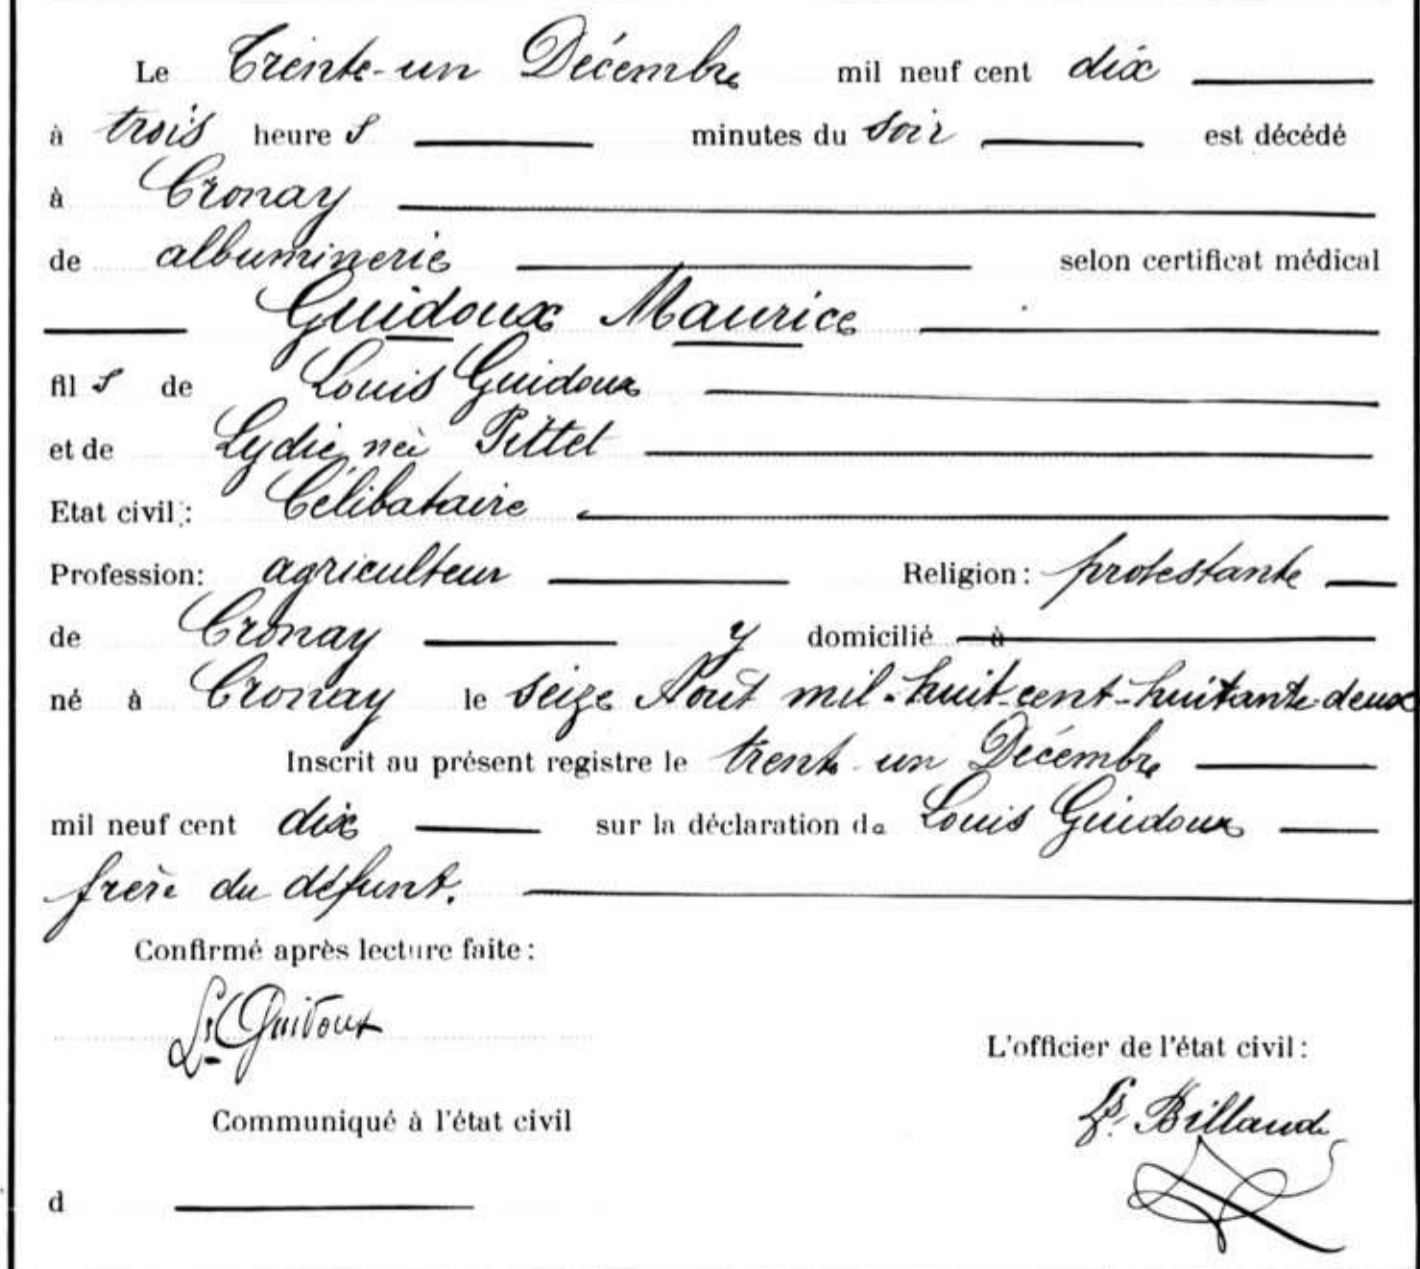 Le Trente-un Décembre mil neuf cent dix
à trois heures minutes du soir est décédé
à Cronay
de albuminerie selon certificat médical
Guidoux Maurice
fils de Louis Guidoux
et de Lydie née Pittet
Etat civil: Célibataire
Profession: agriculteur Religion: protestante
de Cronay y domicilié à
né à Cronay le seize Août mil-huit-cent-huitante-deux
Inscrit au présent registre le trente un Décembre
mil neuf cent dix sur la déclaration de Louis Guidoux
frère du défunt.
Confirmé après lecture faite:
Ls Guidoux
L'officier de l'état civil:
Ls. Billaud
Communiqué à l'état civil
d